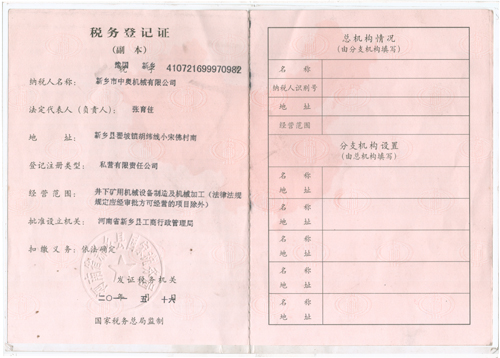 税务登记证
(副 本)
豫国 新乡 410721699970982
税 字 号
纳税人名称: 新乡市中奥机械有限公司
法定代表人(负责人): 张育佳
地 址: 新乡县翟坡镇胡纬线小宋佛村南
登记注册类型: 私营有限责任公司
经 营 范 围: 井下矿用机械设备制造及机械加工(法律法规
规定应经审批方可经营的项目除外)
批准设立机关: 河南省新乡县工商行政管理局
扣 缴 义 务: 依法确定
发证税务机关
二〇一 年 五 月 十六 日
国家税务总局监制
总机构情况
(由分支机构填写)
名 称
纳税人识别号
地 址
经营范围
分支机构设置
(由总机构填写)
名 称
地 址
名 称
地 址
名 称
地 址
名 称
地 址
名 称
地 址